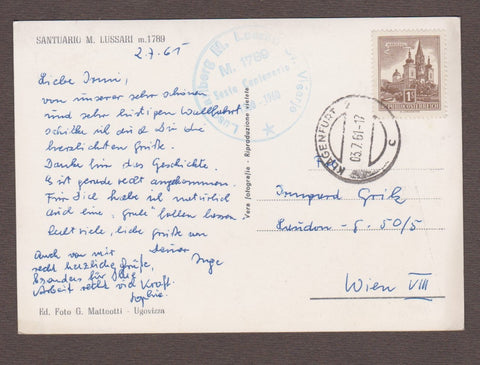 SANTUARIO M. LUSSARI m. 1789
2.7.61
Liebe Irmi,
von unserer sehr schönen
und sehr lustigen Wallfahrt
schicke ich Dir die
herzlichsten Grüße.
Danke für das Geschichte.
Es ist gerade recht angekommen.
Für Dich habe ich natürlich
auch eine, lassen
Recht viele, liebe Grüße von
Deiner Inge
Auch von mir
recht herzliche Grüße,
besonders für Ihre
Arbeit recht viel Kraft.
Sophie
Ed. Foto G. Mattotti - Ugovizza
Vera fotografia - Riproduzione vietata
Luschariberg M. Lussari Sv. Višarje
M. 1789
Sesto Centenario
1360-1960
REPUBLIK ÖSTERREICH
KLAGENFURT
03.7.61-17
C
Irmgard Grik
8. 50/5
Wien VIII